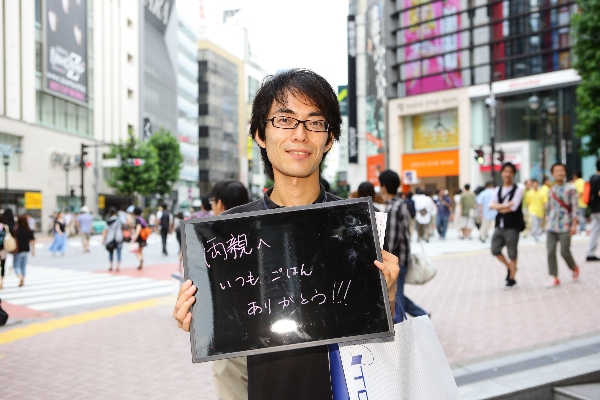 両親へ
いつもごはん
ありがとう!!!